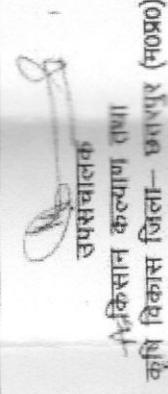 उपसंचालक
किसान कल्याण तथा
कृषि विकास जिला– छतरपुर (म0प्र0)